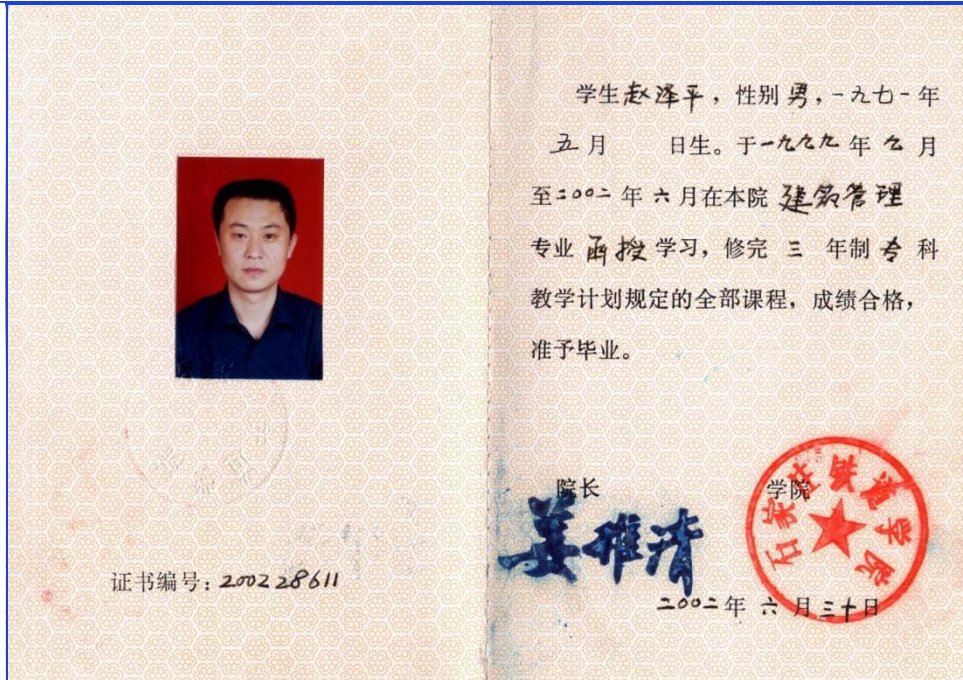 证书编号：200228611
学生赵泽平，性别男，一九七一年
五月　　日生。于一九九九年九月
至二〇〇二年六月在本院建筑管理
专业函授学习，修完三年制专科
教学计划规定的全部课程，成绩合格，
准予毕业。
院长　　学院
姜维清
石家庄铁道学院
二〇〇二年六月三十日